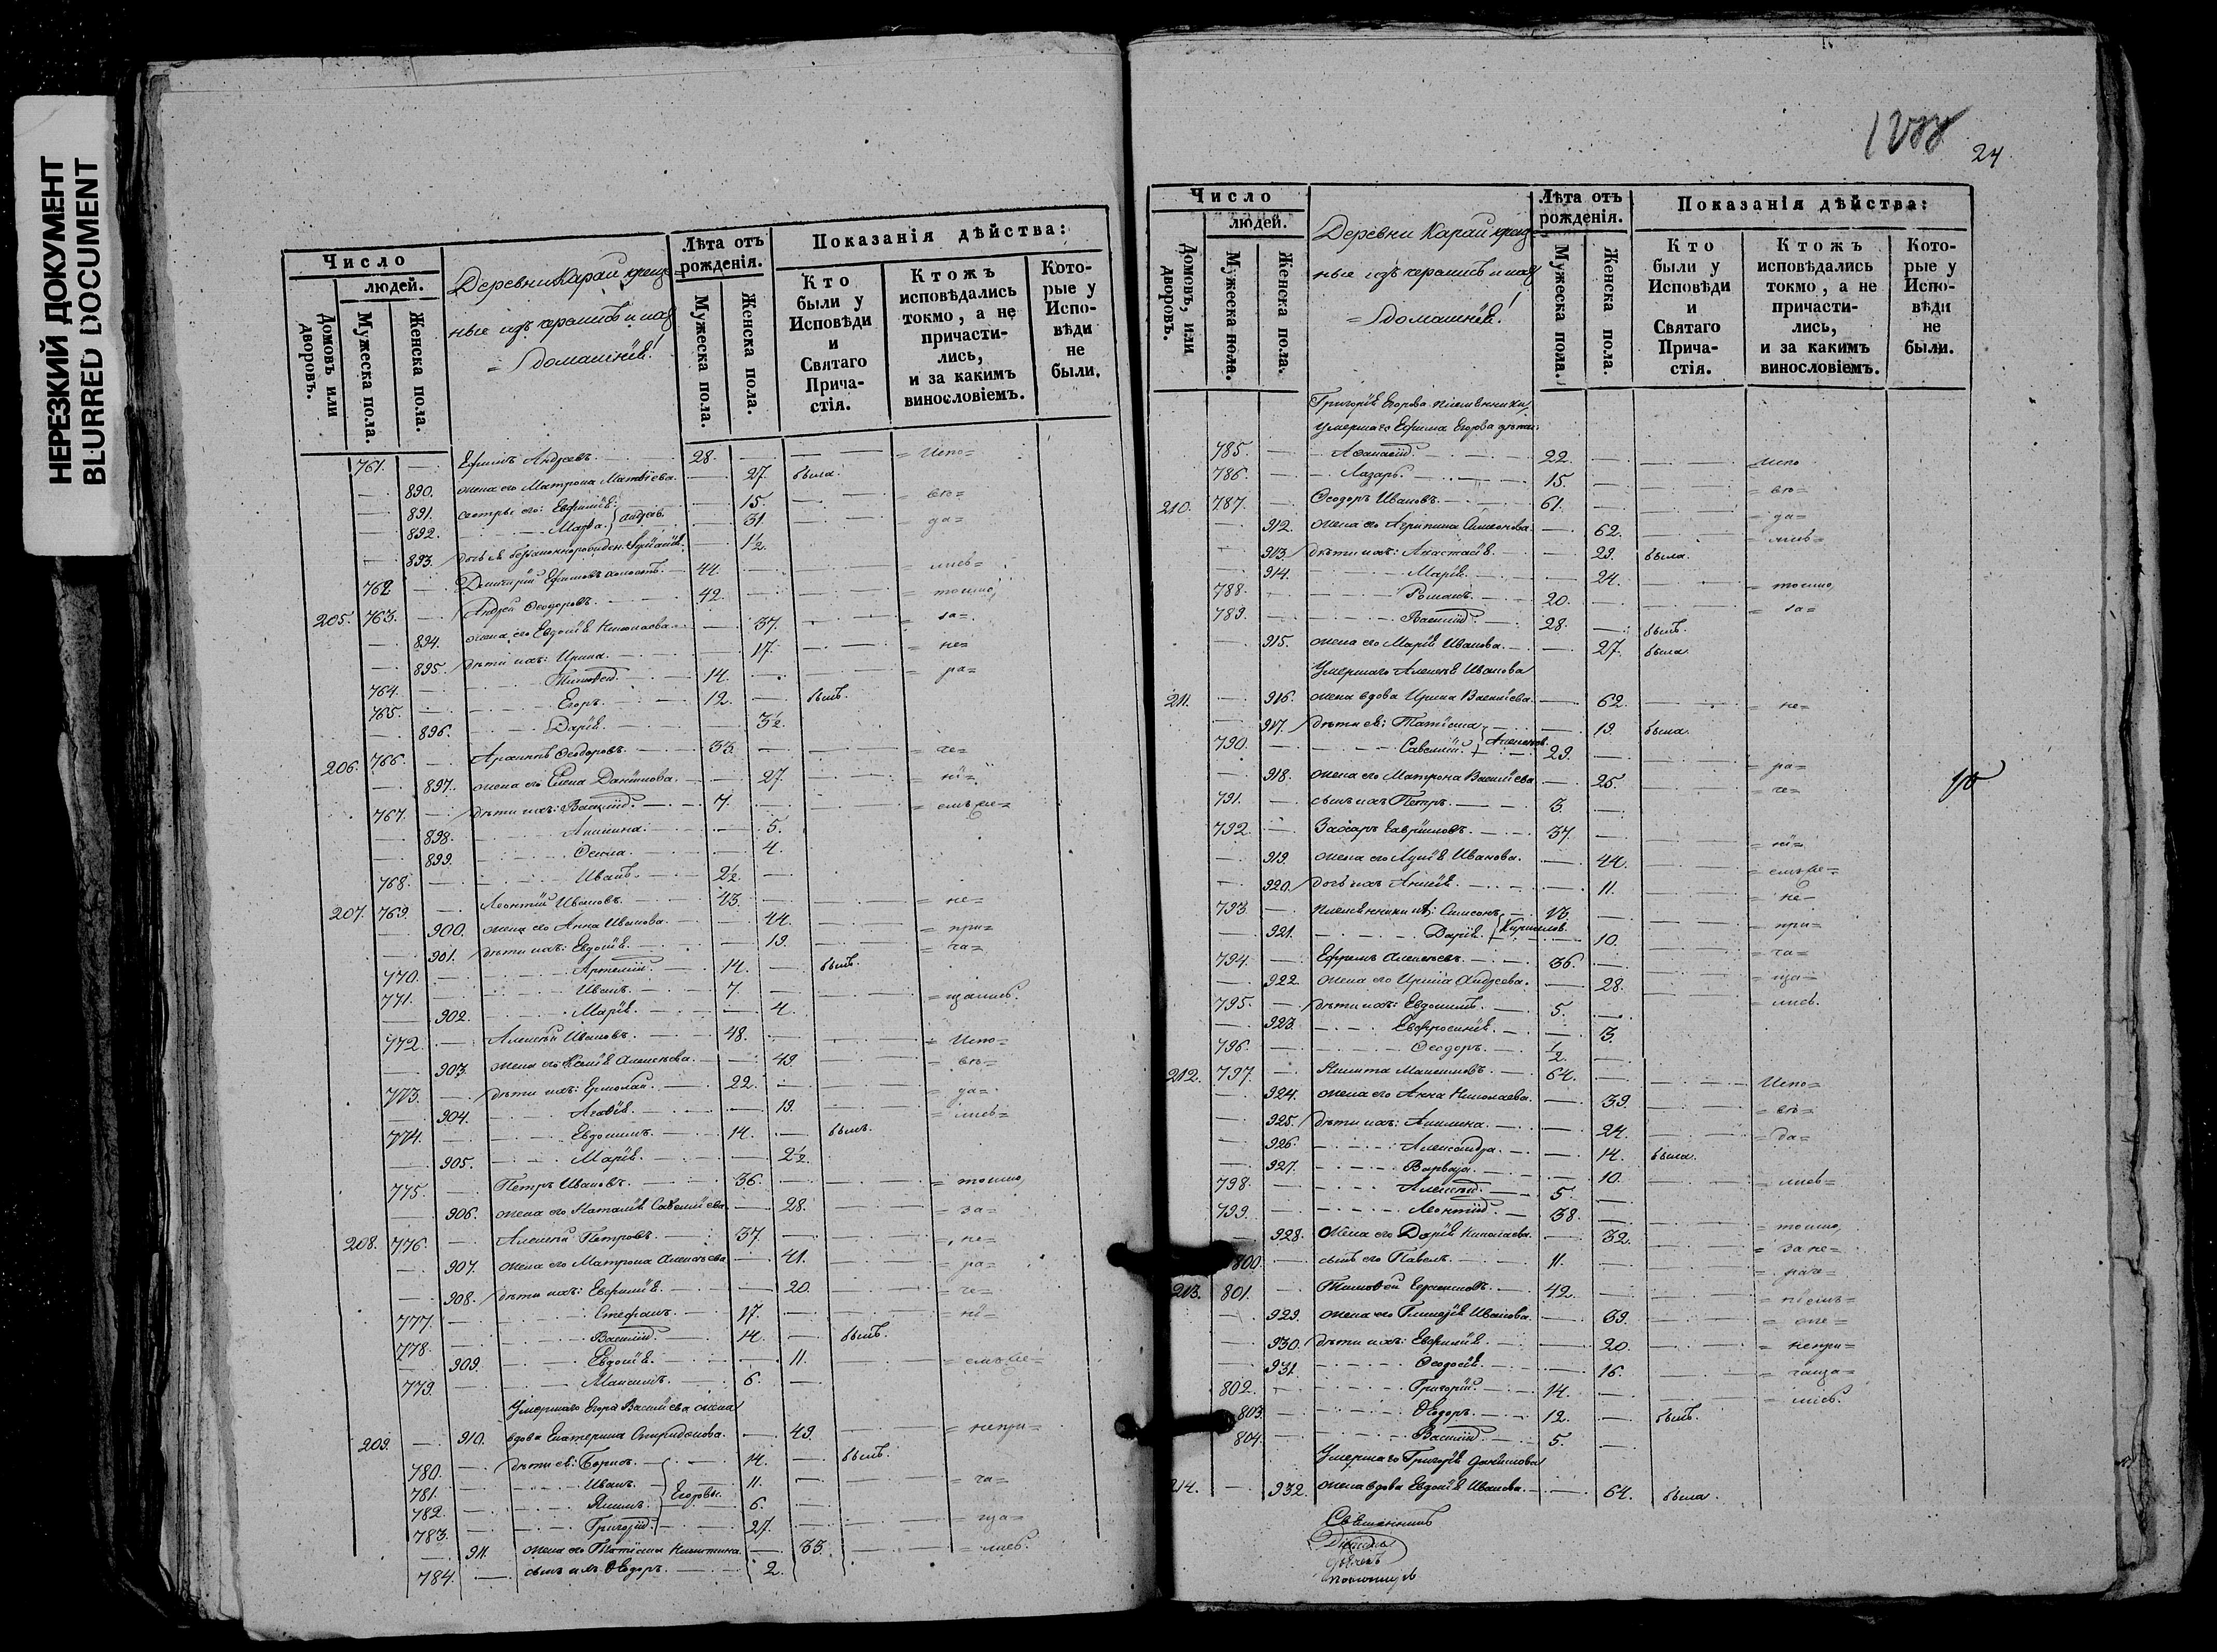 НЕРЕЗКИЙ ДОКУМЕНТ
BLURRED DOCUMENT
Число
людей.
Домовъ или дворовъ.
Мужеска пола.
Женска пола.
Деревни Карай
ные изъ
домашніе
Лѣта отъ рожденія.
Мужеска пола.
Женска пола.
Показанія дѣйства:
Кто были у Исповѣди и Святаго Прича-стія.
Ктожъ исповѣдались токмо, а не причасти-лись, и за какимъ винословіемъ.
Кото-рые у Испо-вѣди не были.
761. Ефимъ Андреевъ. 28. = Испо=
890. жена его Матрона Матвѣева. 27. была.
891. сестры его: Евфимія. 15. = вѣ=
892. Марѳа. 31. = да=
893. 1½.
762. Димитрій Ефимовъ 44. = лись=
205. 763. Андрей Ѳеодоровъ. 42. = токмо,
894. жена его Евдокія Николаева. 37. = за=
895. дѣти ихъ: Ирина. 17. = не=
764. Тимоѳей. 14. = ра=
765. Егоръ. 12. былъ.
896. Дарія. 3½.
206. 766. Архипъ Ѳеодоровъ. 33. = че=
897. жена его Елена Даніилова. 27. = ні=
767. дѣти ихъ: Василій. 7. = емъ не=
898. Акилина. 5.
899. 4.
768. Иванъ. 2½.
207. 769. Леонтій Ивановъ. 43. = не=
900. жена его Анна Иванова. 44. = при=
901. дѣти ихъ: Евдокія. 19. = ча=
770. Артемій. 14. былъ.
771. Иванъ. 7. = щались.
902. Марія. 4.
772. Алексѣй Ивановъ. 48. = Испо=
903. жена его Ксенія Алексѣева. 49. = вѣ=
773. дѣти ихъ: Ермолай. 22. = да=
904. Агаѳія. 19. = лись=
774. Евдокимъ. 14. былъ.
905. Марія. 2½.
775. Петръ Ивановъ. 36. = токмо,
906. жена его Наталія Савельіева. 28. = за=
208. 776. Алексѣй Петровъ. 37. = не=
907. жена его Матрона Алексѣева. 41. = ра=
908. дѣти ихъ: Евфимія. 20. = че=
777. Стефанъ. 17. = ні=
778. Василій. 14. былъ.
909. Евдокія. 11. = емъ не=
779. Максимъ. 6.
Умершаго Егора Васильева жена
209. 910. вдова Екатерина Спиридонова. 49. = непри=
780. дѣти ея: Борисъ. 14. былъ.
781. Иванъ. Егоровы. 11. = ча=
782. Якимъ. 6.
783. Григорій. 27. = ща=
911. жена его Татіана Никитина. 33. = лись.
784. сынъ ихъ Ѳеодоръ. 2.
24
Число
людей.
Домовъ, или дворовъ.
Мужеска пола.
Женска пола.
Деревни Карай
ные изъ
= домашніе
Лѣта отъ рожденія.
Мужеска пола.
Женска пола.
Показанія дѣйства:
Кто были у Исповѣди и Святаго Прича-стія.
Ктожъ исповѣдались токмо, а не причасти-лись, и за какимъ винословіемъ.
Кото-рые у Испо-вѣди не были.
Григорія Егорова племянники,
умершаго Ефима Егорова дѣти:
785. Аѳанасій. 22. = Испо
786. Лазарь. 15. = вѣ=
210. 787. Ѳеодоръ Ивановъ. 61. = да=
912. жена его Агрипина Симеонова. 62. = лись=
913. дѣти ихъ: Анастасія. 29. была.
914. Марія. 24. = токмо,
788. Романъ. 20. = за=
789. Василій. 28. былъ.
915. жена его Марія Иванова. 27. была.
Умершаго Алексѣя Иванова
211. 916. жена вдова Ирина Васильева. 62. = не=
917. дѣти ея: Татіана 19. была.
790. Савелій. Алексѣев. 29. = ра=
918. жена его Матрона Васильева. 25. = че=
791. сынъ ихъ Петръ. 3.
792. Захаръ Гавріиловъ. 37. = ні=
919. жена его Лукія Иванова. 44. = емъ не=
920. дочь ихъ 11. = не=
793. племянники их: Симеонъ. 13. = при=
921. Дарія. Кириллов. 10. = ча=
794. Ефремъ Алексѣевъ. 36. = ща=
922. жена его Ирина Андреева. 28. = лись.
795. дѣти ихъ: Евдокимъ. 5.
923. Евфросинія. 3.
796. Ѳеодоръ. ½.
212. 797. Никита Максимовъ. 64. Испо=
924. жена его Анна Николаева. 39. = вѣ=
925. дѣти ихъ: Акилина. 24. = да=
926. Александра. 14. была.
927. Варвара. 10. = лись=
798. Алексѣй. 5.
799. Леонтій. 38. = токмо,
928. Жена его Дарія Николаева. 32. = за не=
800. сынъ его Павелъ. 11. = раче=
213. 801. Тимоѳей 42. = ніемъ=
929. жена его Гликерія Иванова. 39.
930. дѣти ихъ: Евфимія. 20. = непри=
931. Ѳеодосія. 16. = чаща=
802. Григорій. 14. = лись.
803. Ѳеодоръ. 12. былъ.
804. Василій. 5.
Умершаго Григорія Даніилова
214. 932. жена вдова Евдокія Иванова. 64. была.
Священникъ
Діаконъ
Дьячекъ
пономарь